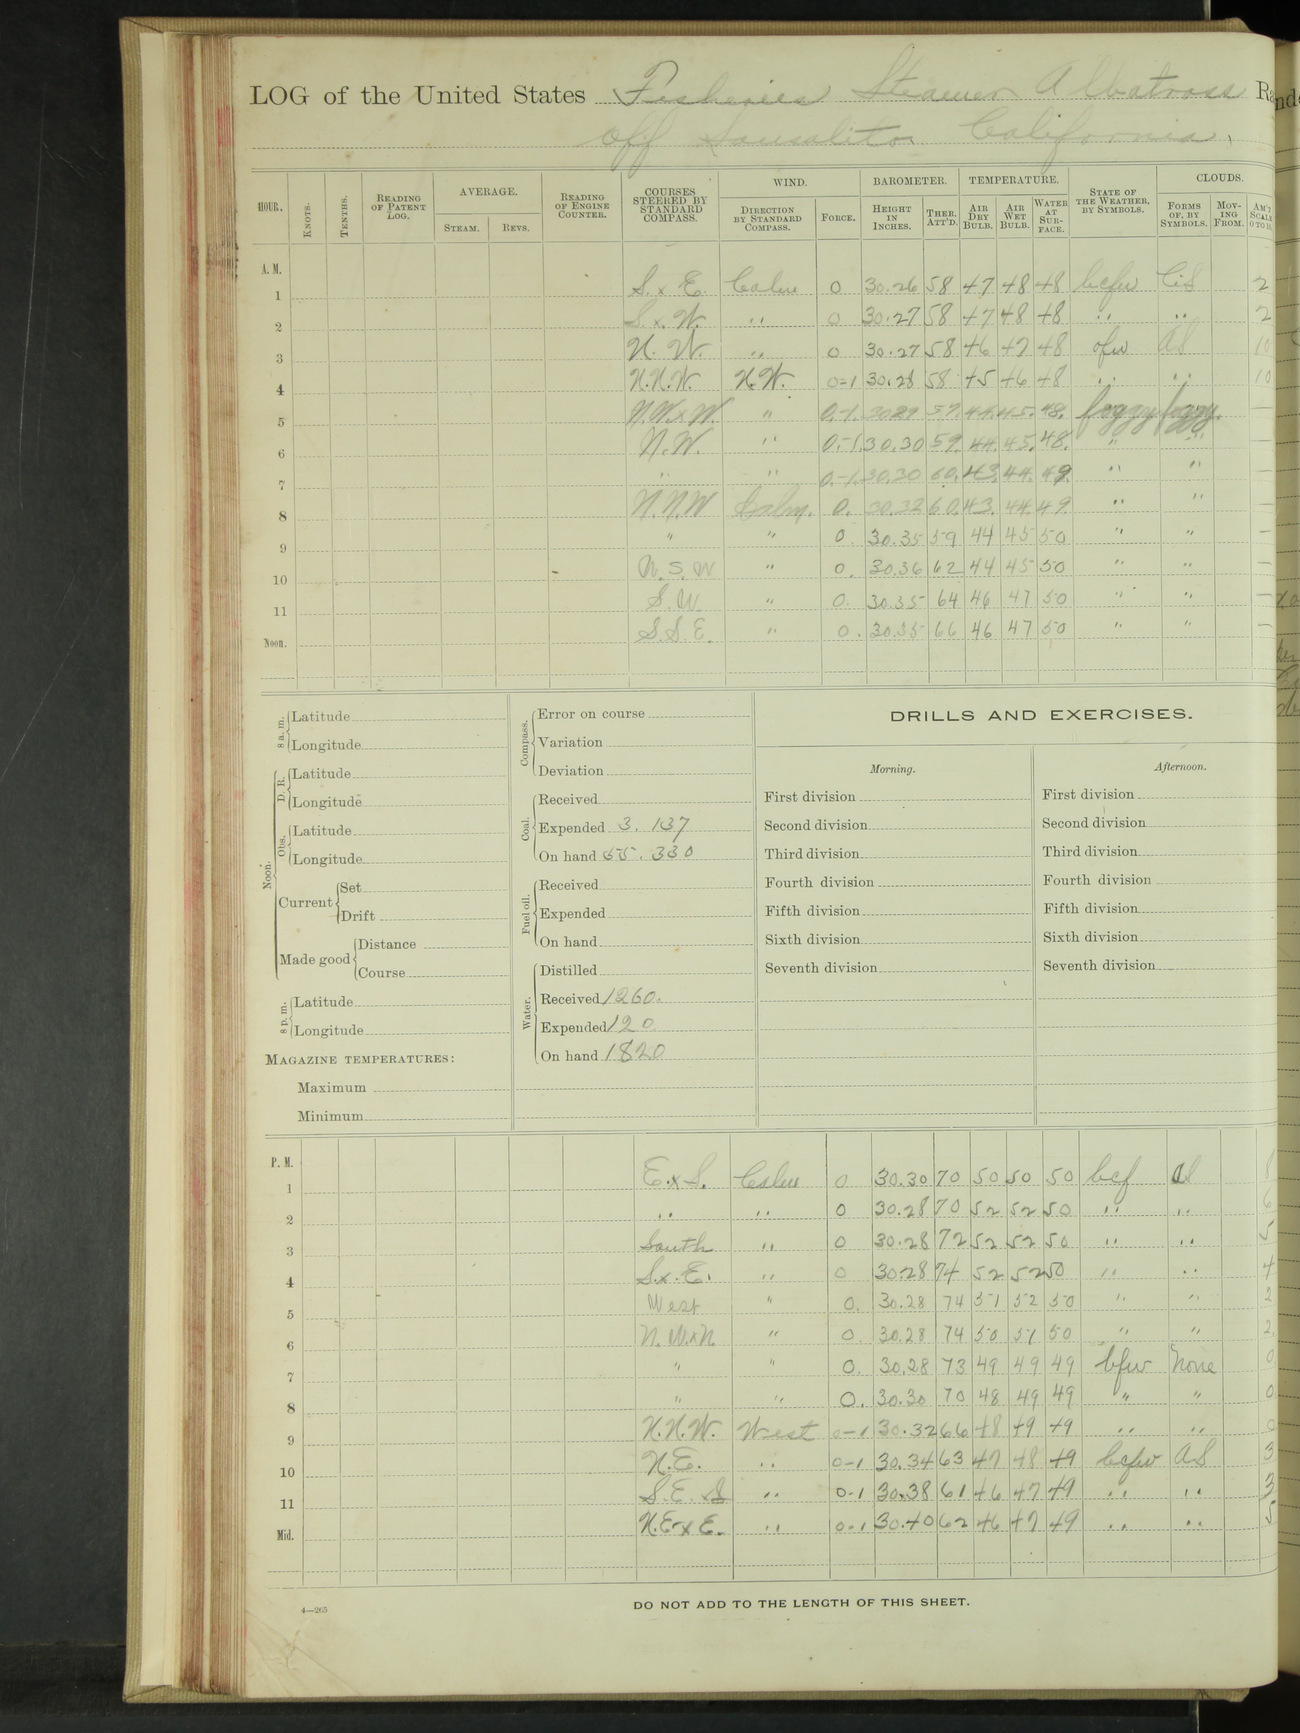 LOG of the United States Fisheries Steamer Albatross Ra
off Sausalito California,
HOUR. KNOTS. TENTHS. READING OF PATENT LOG. AVERAGE. STEAM. REVS. READING OF ENGINE COUNTER. COURSES STEERED BY STANDARD COMPASS. WIND. DIRECTION BY STANDARD COMPASS. FORCE. BAROMETER. HEIGHT IN INCHES. THER. ATT'D. TEMPERATURE. AIR DRY BULB. AIR WET BULB. WATER AT SURFACE. STATE OF THE WEATHER, BY SYMBOLS. CLOUDS. FORMS OF, BY SYMBOLS. MOVING FROM. AM'T SCALE 0 TO 10
A. M.
1 S. x E. Calm 0 30.26 58 47 48 48 bcfw CiS 2
2 S. x. W. " 0 30.27 58 47 48 48 " " 2
3 N. W. " 0 30.27 58 46 47 48 ofw AS 10
4 N.N.W. N.W. 0-1 30.28 58 45 46 48 " " 10
5 N.W.xW. " 0.-1. 30.29 59. 44. 45. 48. foggy foggy. —
6 N.W. " 0.-1. 30.30 59. 44. 45. 48. " " —
7 " " 0.-1. 30.30 60. 43. 44. 49. " " —
8 N.N.W Calm. 0. 30.32 60. 43. 44. 49. " " —
9 " " 0. 30.35 59 44 45 50 " " —
10 W. S. W " 0. 30.36 62 44 45 50 " " —
11 S. W. " 0. 30.35 64 46 47 50 " " —
Noon. S. S. E. " 0. 30.35 66 46 47 50 " " —
8 a. m. Latitude
Longitude
Noon. D. R. Latitude
Longitude
Obs. Latitude
Longitude
Current Set
Drift
Made good Distance
Course
8 p. m. Latitude
Longitude
MAGAZINE TEMPERATURES:
Maximum
Minimum
Compass. Error on course
Variation
Deviation
Coal. Received
Expended 3. 137
On hand 55. 330
Fuel oil. Received
Expended
On hand
Water. Distilled
Received 1260.
Expended 120
On hand 1820
DRILLS AND EXERCISES.
Morning. Afternoon.
First division First division
Second division Second division
Third division Third division
Fourth division Fourth division
Fifth division Fifth division
Sixth division Sixth division
Seventh division Seventh division
P. M.
1 E.xS. Calm 0 30.30 70 50 50 50 bcf AS 8
2 " " 0 30.28 70 52 52 50 " " 6
3 South " 0 30.28 72 52 52 50 " " 5
4 S.x.E. " 0 30.28 74 52 52 50 " " 4
5 West " 0. 30.28 74 51 52 50 " " 2
6 N. W.xN. " 0. 30.28 74 50 51 50 " " 2
7 " " 0. 30.28 73 49 49 49 bfw None 0
8 " " 0. 30.30 70 48 49 49 " " 0
9 N.N.W. West 0-1 30.32 66 48 49 49 " " 0
10 N.E. " 0-1 30.34 63 47 48 49 bcfw AS 3
11 S.E. S " 0-1 30.38 61 46 47 49 " " 3
Mid. N.E x E. " 0-1 30.40 62 46 47 49 " " 5
4—265
DO NOT ADD TO THE LENGTH OF THIS SHEET.